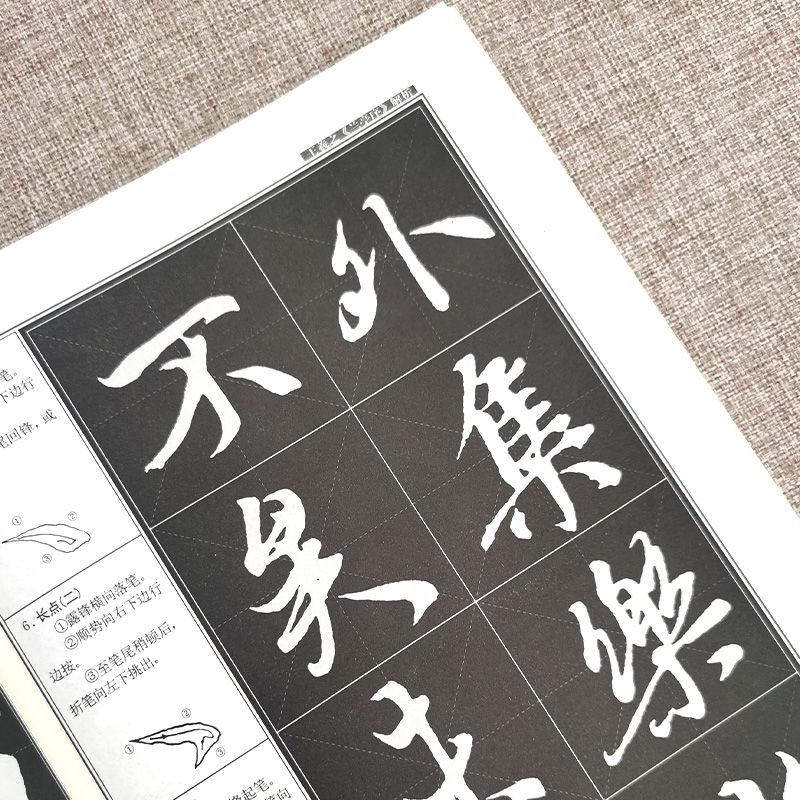 王羲之《兰亭序》解析
外
集
樂
不
是
笔。
下边行
尾回锋，或
① ②
③
6.长点(二)
①露锋横向落笔。
②顺势向右下边行
边按。 ③至笔尾稍顿后，
折笔向左下挑出。
②
① ③
锋起笔。
笔向